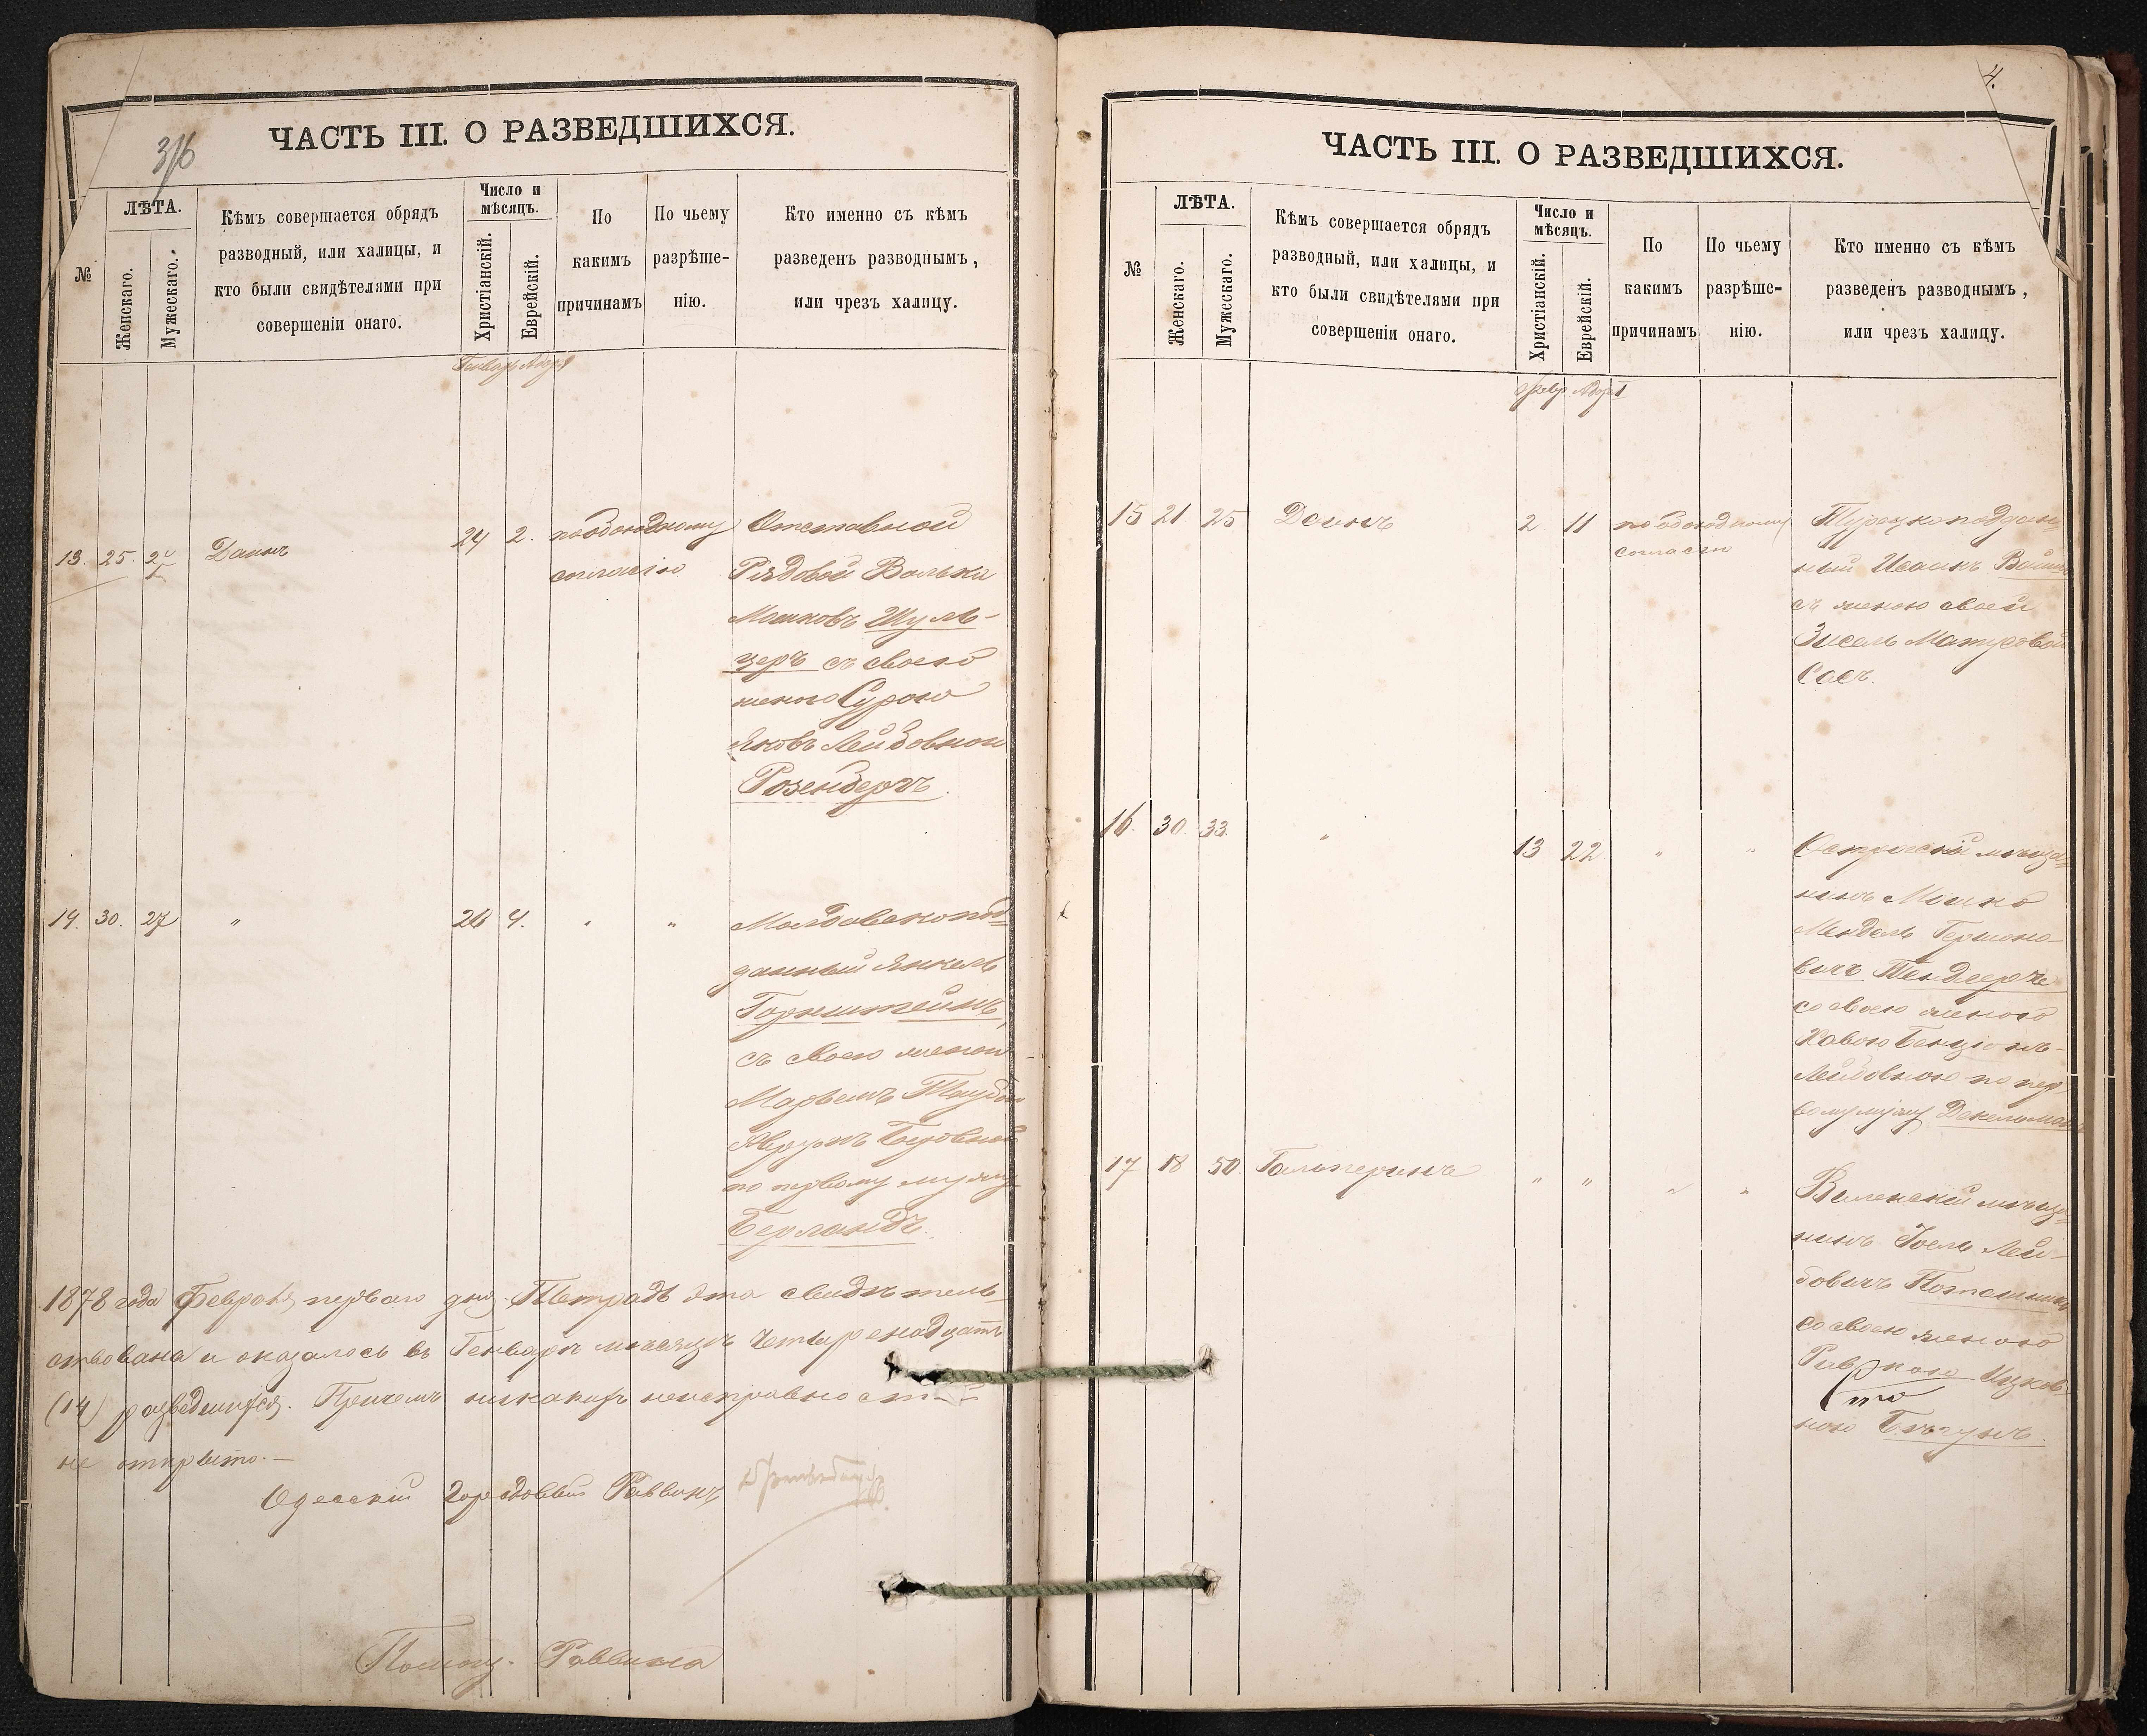 316
ЧАСТЬ III. О РАЗВЕДШИХСЯ.
№
ЛѢТА.
Женскаго.
Мужескаго.
Кѣмъ совершается обрядъ
разводный, или халицы, и
кто были свидѣтелями при
совершеніи онаго.
Число и
мѣсяцъ.
Христіанскій.
Еврейскій.
По
какимъ
причинамъ
По чьему
разрѣше-
нію.
Кто именно съ кѣмъ
разведенъ разводнымъ,
или чрезъ халицу.
Генварь Адоръ
13. 25. Даинъ 24 2. по обоюдному
согласію
Отставной
Рядовой Волько
Мошковъ Шуль-
церъ съ своею
женою Сурою
Яковъ Лейбовною
Розенбергъ.
14. 30. 27 " 26 4. " "
Молдавскопод-
данный Янкель
Горнштейнъ,
съ своею женою
Марьемъ Таубою
Аврумъ Беровной
по первому мужу
Берландъ.
1878 года Февраля перваго дня. Тетрадь эта свидѣтель-
ствована и оказалось въ Генварѣ мѣсяцѣ четыренадцать
(14) разведшихся. Причемъ никакихъ неисправностей
не открыто. —
Одесскій Городовый Раввинъ
Помощ. Раввина
4.
ЧАСТЬ III. О РАЗВЕДШИХСЯ.
№
ЛѢТА.
Женскаго.
Мужескаго.
Кѣмъ совершается обрядъ
разводный, или халицы, и
кто были свидѣтелями при
совершеніи онаго.
Число и
мѣсяцъ.
Христіанскій.
Еврейскій.
По
какимъ
причинамъ
По чьему
разрѣше-
нію.
Кто именно съ кѣмъ
разведенъ разводнымъ,
или чрезъ халицу.
Февр Адоръ I
15 21 25 Даинъ 2 11 по обоюдному
согласію
Турецкоподдан
ный Исаакъ
съ женою своей
Зисель
Сасъ.
16. 30. 33. " 13 22 " "
мѣща-
нинъ Мошко
Мендель Гершоно-
вичъ
со своею женою
Хавою Бенціонъ-
Лейбовною по пер-
вому мужу
17 18 50. Гальперинъ " " " "
Виленскій мѣща-
нинъ Іоель Лей-
бовичъ
со своею женою
Ривкою Ицков-
ною Бѣгунъ.